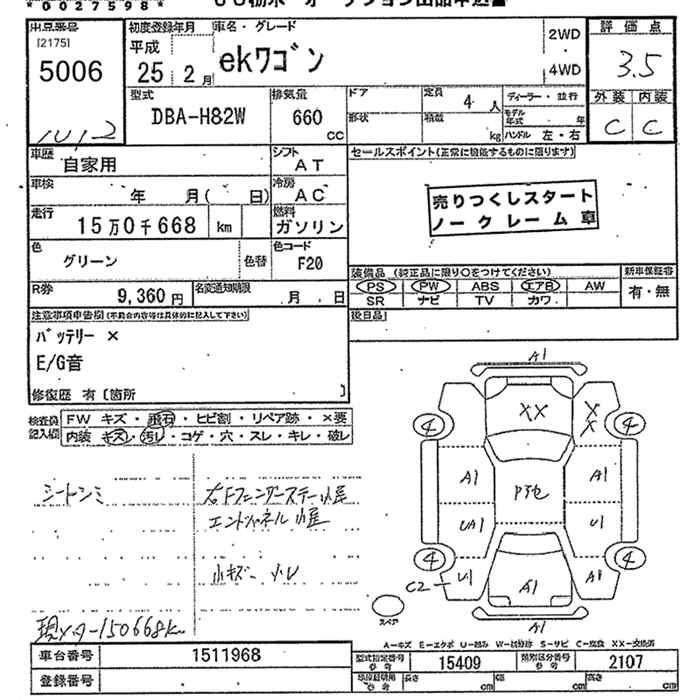 *0027598*
出品番号
[2175]
5006
初度登録年月
平成
25年 2月
車名・グレード
ekワゴン
2WD
4WD
評価点
3.5
外装 内装
C C
型式
DBA-H82W
排気量
660
cc
ドア
形状
定員
4 人
積載
kg
ディーラー・並行
モデル年式 年
ハンドル 左・右
車歴
自家用
シフト
AT
車検
年 月( 日)
冷房
AC
走行
15万0千668 km
燃料
ガソリン
色
グリーン
色替
色コード
F20
R券
9,360円
名変通知期限
月 日
セールスポイント(正常に機能するものに限ります)
売りつくしスタート
ノークレーム車
装備品 (純正品に限り○をつけてください)
PS PW ABS エアB AW
SR ナビ TV カワ
新車保証書
有・無
後日品
注意事項申告欄(不具合内容等は具体的に記入して下さい)
バッテリー ×
E/G音
修復歴 有〔箇所 〕
検査員記入欄
FW キズ・飛石・ヒビ割・リペア跡・×要
内装 キズ・汚レ・コゲ・穴・スレ・キレ・破レ
シートシミ
右Fフェンダーステー
エンドパネル
小キズ
現メーター150668km
A1
XX
X
X
4
4
A1
A1
Pアセ
UA1
U1
4
4
C2
U1
A1
A1
A1
スペア
A-キズ E-エクボ U-凹み W-補修跡 S-サビ C-腐食 XX-交換済
車台番号
1511968
登録番号
型式指定番号
参考
15409
類別区分番号
参考
2107
参考
長さ
cm
幅
cm
高さ
cm